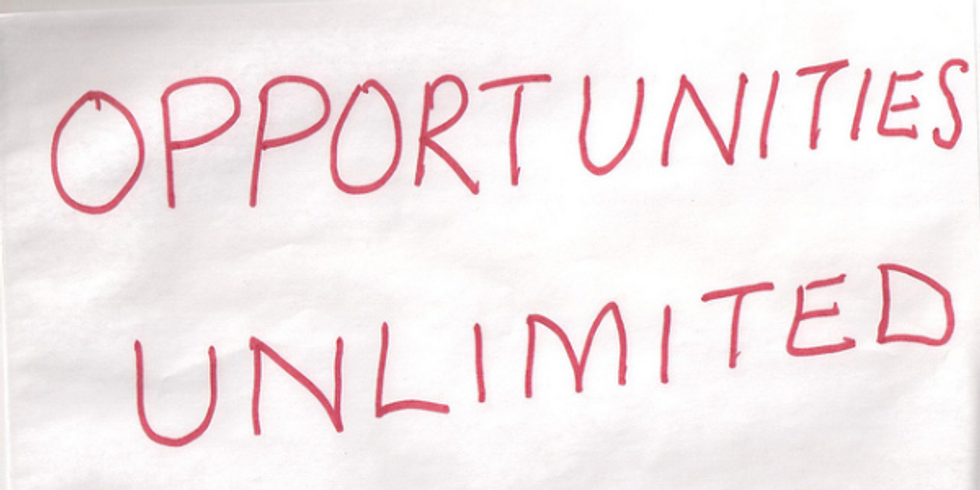 OPPORTUNITIES
UNLIMITED